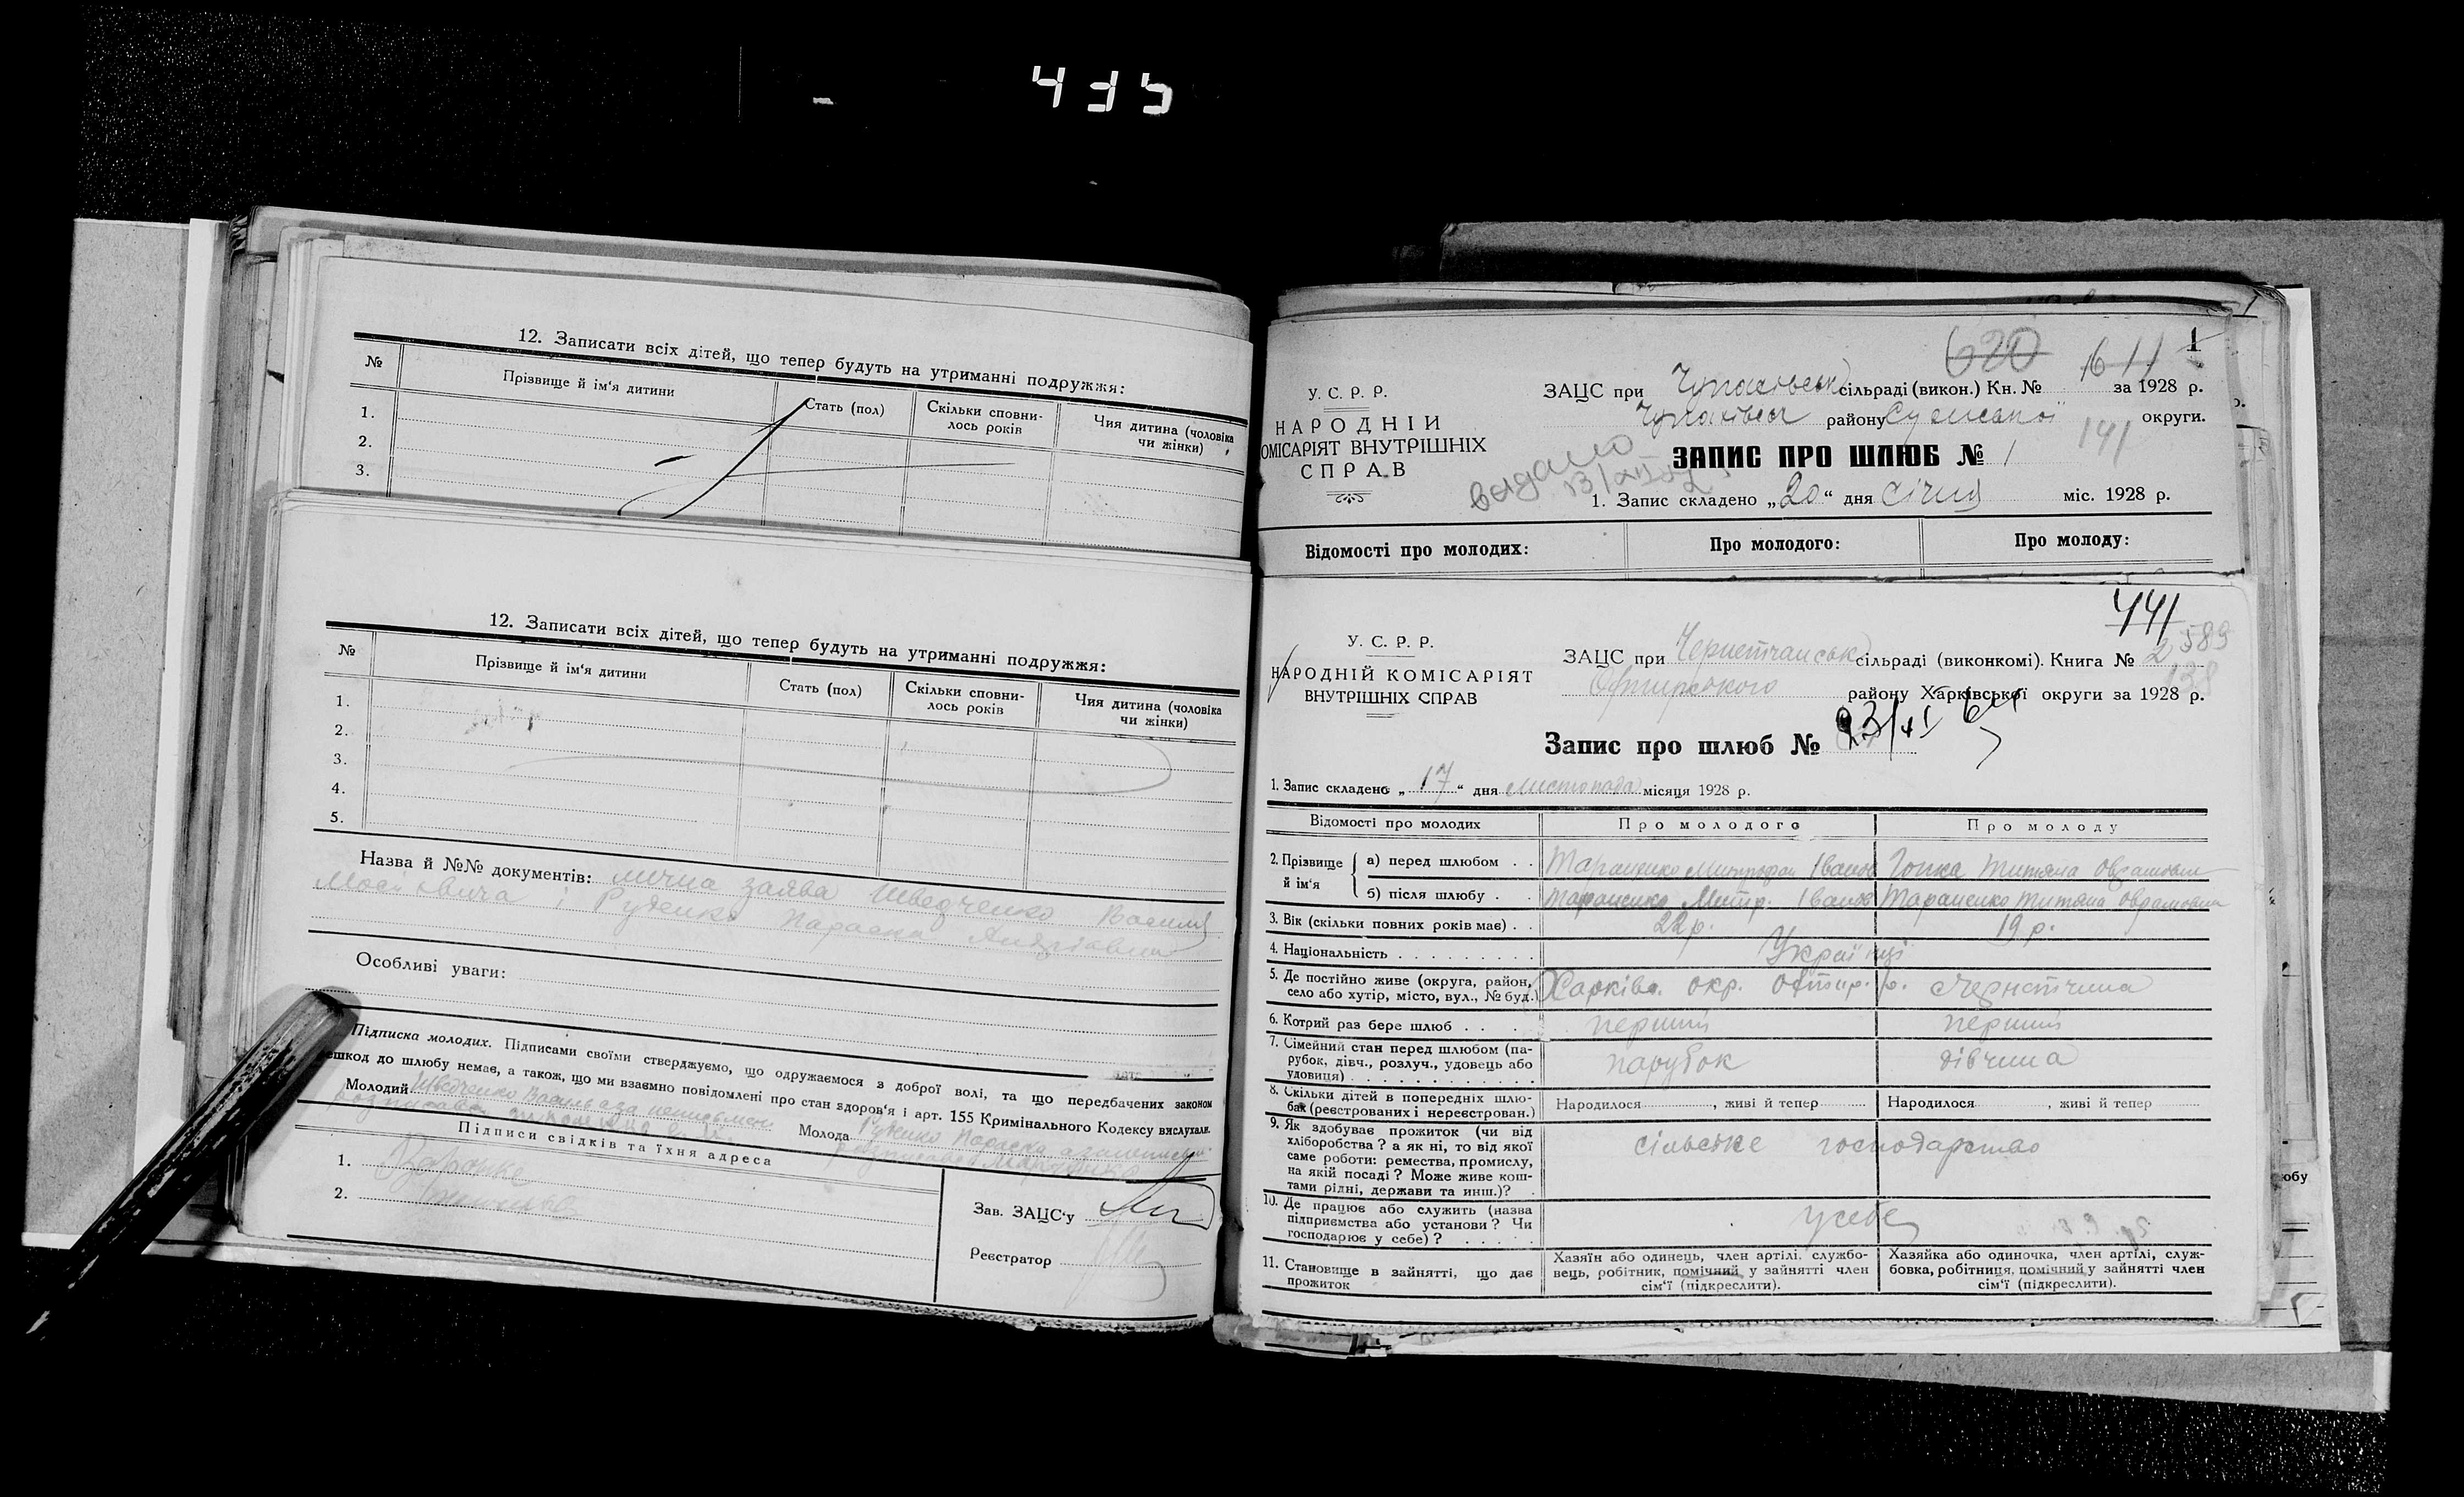 435
12. Записати всіх дітей, що тепер будуть на утриманні подружжя:
№ Прізвище й ім'я дитини Стать (пол) Скільки сповнилось років Чия дитина (чоловіка чи жінки)
1.
2.
3.
12. Записати всіх дітей, що тепер будуть на утриманні подружжя:
№ Прізвище й ім'я дитини Стать (пол) Скільки сповнилось років Чия дитина (чоловіка чи жінки)
1.
2.
3.
4.
5.
Назва й №№ документів: лична заява Шведченко Василя
Мосійовича і Руденко Параска Андріівни
Особливі уваги:
Підписка молодих. Підписами своїми стверджуємо, що одружаємося з доброї волі, та що передбачених законом
ешкод до шлюбу немає, а також, що ми взаємно повідомлені про стан здоров'я і арт. 155 Кримінального Кодексу вислухали.
Молодий Шведченко Василь а за неписьмен.
розписався
Молода Руденко Параска а за неписьм.
Підписи свідків та їхня адреса
1.
2.
Зав. ЗАЦС'у
Реєстратор
У. С. Р. Р.
НАРОДНІЙ
ОМІСАРІЯТ ВНУТРІШНІХ
СПРАВ
620 611 1
ЗАЦС при Чупахівськ сільраді (викон.) Кн. № за 1928 р.
Чупахівськ району Сумської округи.
141
видано
ЗАПИС ПРО ШЛЮБ № 1
1. Запис складено „20“ дня січня міс. 1928 р.
Відомості про молодих: Про молодого: Про молоду:
441
589
138
У. С. Р. Р.
НАРОДНІЙ КОМІСАРІЯТ
ВНУТРІШНІХ СПРАВ
ЗАЦС при Чернетчанськ сільраді (виконкомі). Книга № 2
Охтирського району Харківської округи за 1928 р.
Запис про шлюб № 23/XI
1. Запис складено „17“ дня листопада місяця 1928 р.
Відомості про молодих Про молодого Про молоду
2. Прізвище й ім'я
а) перед шлюбом . . Тараненко Митрофан Іванов Гопка Титяна Оврамовна
б) після шлюбу . . Тараненко Митр. Іванов Тараненко Титяна Оврамовна
3. Вік (скільки повних років має) . . 22 р. 19 р.
4. Національність . . . . . . . . . Українці
5. Де постійно живе (округа, район, село або хутір, місто, вул., № буд.) Харків. окр. Охтир. р. Чернетчина
6. Котрий раз бере шлюб . . . перший перший
7. Сімейний стан перед шлюбом (парубок, дівч., розлуч., удовець або удовиця) . . . парубок дівчина
8. Скільки дітей в попередніх шлюбах (реєстрованих і нереєстрован.) Народилося , живі й тепер Народилося , живі й тепер
9. Як здобуває прожиток (чи від хліборобства? а як ні, то від якої саме роботи: ремества, промислу, на якій посаді? Може живе коштами рідні, держави та инш.)? сільське господарство
10. Де працює або служить (назва підприємства або установи? Чи господарює у себе)? . . . . . у себе
11. Становище в зайнятті, що дає прожиток Хазяїн або одинець, член артілі, службовець, робітник, помічний у зайнятті член сім'ї (підкреслити). Хазяйка або одиночка, член артілі, службовка, робітниця, помічний у зайнятті член сім'ї (підкреслити).
юбу